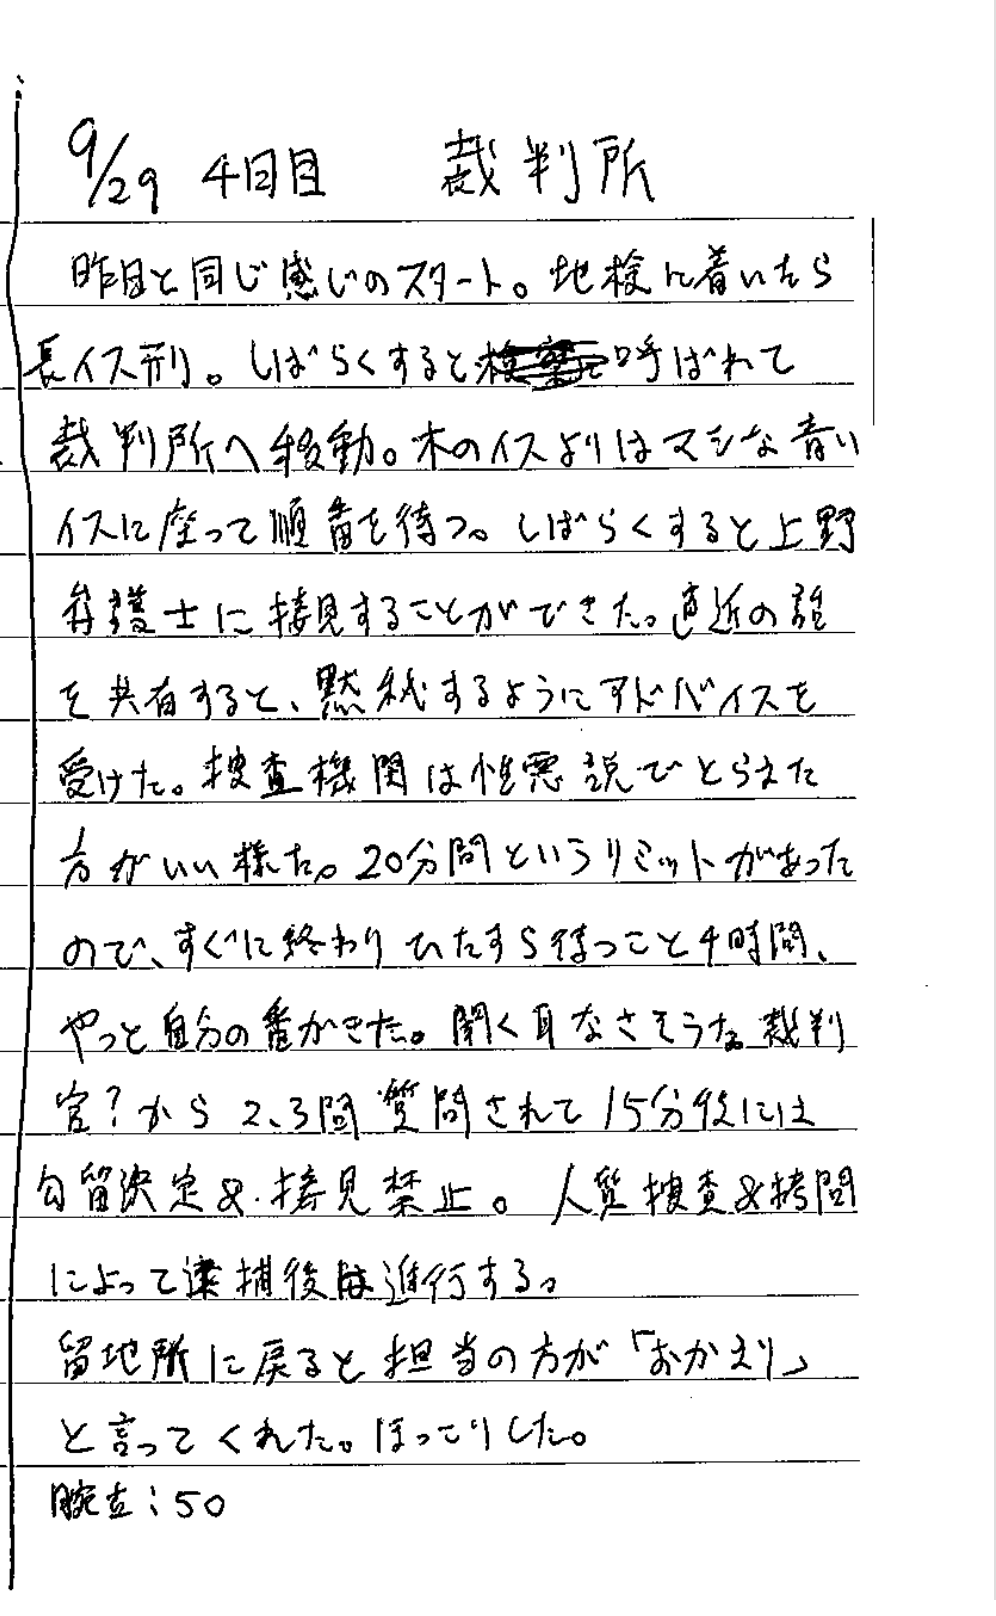 9/29 4日目 裁判所
昨日と同じ感じのスタート。地検に着いたら
長イス刑。しばらくすると呼ばれて
裁判所へ移動。木のイスよりはマシな青い
イスに座って順番を待つ。しばらくすると上野
弁護士に接見することができた。直近の話
を共有すると、黙秘するようにアドバイスを
受けた。捜査機関は性悪説でとらえた
方がいい様だ。20分間というリミットがあった
ので、すぐに終わりひたすら待つこと4時間、
やっと自分の番がきた。聞く耳なさそうな裁判
官?から2、3問質問されて15分後には
勾留決定&接見禁止。人質捜査&拷問
によって逮捕後は進行する。
留地所に戻ると担当の方が「おかえり」
と言ってくれた。ほっこりした。
腕立:50